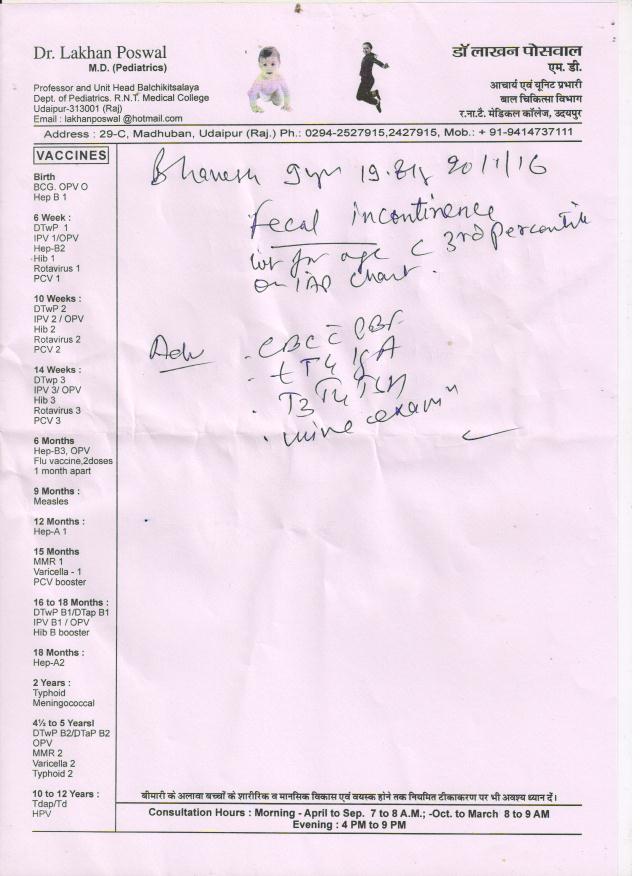 Dr. Lakhan Poswal
M.D. (Pediatrics)
Professor and Unit Head Balchikitsalaya
Dept. of Pediatrics. R.N.T. Medical College
Udaipur-313001 (Raj)
Email : lakhanposwal @hotmail.com
डॉ लाखन पोसवाल
एम. डी.
आचार्य एवं यूनिट प्रभारी
बाल चिकित्सा विभाग
र.ना.टै. मेडिकल कॉलेज, उदयपुर
Address : 29-C, Madhuban, Udaipur (Raj.) Ph.: 0294-2527915,2427915, Mob.: + 91-9414737111
VACCINES
Birth
BCG. OPV O
Hep B 1
6 Week :
DTwP 1
IPV 1/OPV
Hep-B2
Hib 1
Rotavirus 1
PCV 1
10 Weeks :
DTwP 2
IPV 2 / OPV
Hib 2
Rotavirus 2
PCV 2
14 Weeks :
DTwp 3
IPV 3/ OPV
Hib 3
Rotavirus 3
PCV 3
6 Months
Hep-B3, OPV
Flu vaccine,2doses
1 month apart
9 Months :
Measles
12 Months :
Hep-A 1
15 Months
MMR 1
Varicella - 1
PCV booster
16 to 18 Months :
DTwP B1/DTap B1
IPV B1 / OPV
Hib B booster
18 Months :
Hep-A2
2 Years :
Typhoid
Meningococcal
4½ to 5 Yearsl
DTwP B2/DTaP B2
OPV
MMR 2
Varicella 2
Typhoid 2
10 to 12 Years :
Tdap/Td
HPV
Bhavesh 9yr 20/1/16
Fecal incontinence
wt for age c 3rd Percentile
on IAP chart.
Adv . CBC c PBF
. tTG IgA
. T3 T4 TSH
. urine examn
बीमारी के अलावा बच्चों के शारीरिक व मानसिक विकास एवं वयस्क होने तक नियमित टीकाकरण पर भी अवश्य ध्यान दें।
Consultation Hours : Morning - April to Sep. 7 to 8 A.M.; -Oct. to March 8 to 9 AM
Evening : 4 PM to 9 PM